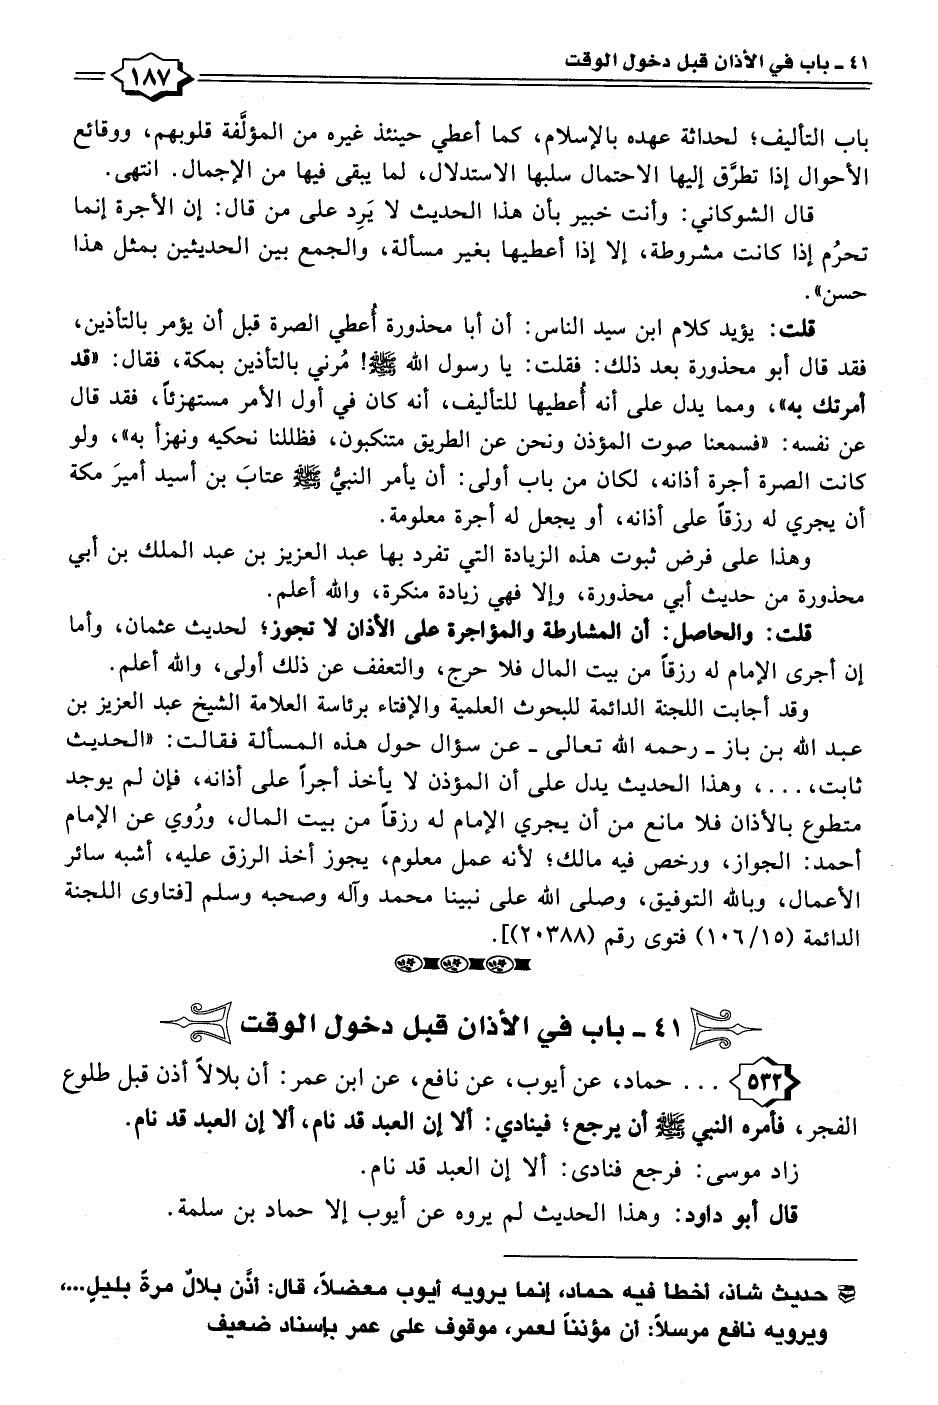 ٤١ - باب في الأذان قبل دخول الوقت
١٨٧
باب التأليف؛ لحداثة عهده بالإسلام، كما أعطي حينئذ غيره من المؤلَّفة قلوبهم، ووقائع
الأحوال إذا تطرَّق إليها الاحتمال سلبها الاستدلال، لما يبقى فيها من الإجمال. انتهى.
قال الشوكاني: وأنت خبير بأن هذا الحديث لا يَرِد على من قال: إن الأجرة إنما
تحرُم إذا كانت مشروطة، إلا إذا أعطيها بغير مسألة، والجمع بين الحديثين بمثل هذا
حسن».
قلت: يؤيد كلام ابن سيد الناس: أن أبا محذورة أُعطي الصرة قبل أن يؤمر بالتأذين،
فقد قال أبو محذورة بعد ذلك: فقلت: يا رسول الله ﷺ! مُرني بالتأذين بمكة، فقال: «قد
أمرتك به»، ومما يدل على أنه أُعطيها للتأليف، أنه كان في أول الأمر مستهزئاً، فقد قال
عن نفسه: «فسمعنا صوت المؤذن ونحن عن الطريق متنكبون، فظللنا نحكيه ونهزأ به»، ولو
كانت الصرة أجرة أذانه، لكان من باب أولى: أن يأمر النبيُّ ﷺ عتابَ بن أسيد أميرَ مكة
أن يجري له رزقاً على أذانه، أو يجعل له أجرة معلومة.
وهذا على فرض ثبوت هذه الزيادة التي تفرد بها عبد العزيز بن عبد الملك بن أبي
محذورة من حديث أبي محذورة، وإلا فهي زيادة منكرة، والله أعلم.
قلت: والحاصل: أن المشارطة والمؤاجرة على الأذان لا تجوز؛ لحديث عثمان، وأما
إن أجرى الإمام له رزقاً من بيت المال فلا حرج، والتعفف عن ذلك أولى، والله أعلم.
وقد أجابت اللجنة الدائمة للبحوث العلمية والإفتاء برئاسة العلامة الشيخ عبد العزيز بن
عبد الله بن باز ـ رحمه الله تعالى ـ عن سؤال حول هذه المسألة فقالت: «الحديث
ثابت، ...، وهذا الحديث يدل على أن المؤذن لا يأخذ أجراً على أذانه، فإن لم يوجد
متطوع بالأذان فلا مانع من أن يجري الإمام له رزقاً من بيت المال، ورُوي عن الإمام
أحمد: الجواز، ورخص فيه مالك؛ لأنه عمل معلوم، يجوز أخذ الرزق عليه، أشبه سائر
الأعمال، وبالله التوفيق، وصلى الله على نبينا محمد وآله وصحبه وسلم [فتاوى اللجنة
الدائمة (١٠٦/١٥) فتوى رقم (٢٠٣٨٨)].
٤١ - باب في الأذان قبل دخول الوقت
٥٣٢ ... حماد، عن أيوب، عن نافع، عن ابن عمر: أن بلالاً أذن قبل طلوع
الفجر، فأمره النبي ﷺ أن يرجع؛ فينادي: ألا إن العبد قد نام، ألا إن العبد قد نام.
زاد موسى: فرجع فنادى: ألا إن العبد قد نام.
قال أبو داود: وهذا الحديث لم يروه عن أيوب إلا حماد بن سلمة.
حديث شاذ، أخطأ فيه حماد، إنما يرويه أيوب معضلاً، قال: أذَّن بلالٌ مرةً بليلٍ...،
ويرويه نافع مرسلاً: أن مؤذناً لعمر، موقوف على عمر بإسناد ضعيف